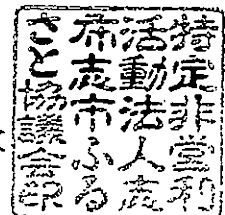 特定非営利
活動法人志
布志市ふる
さと協議会印